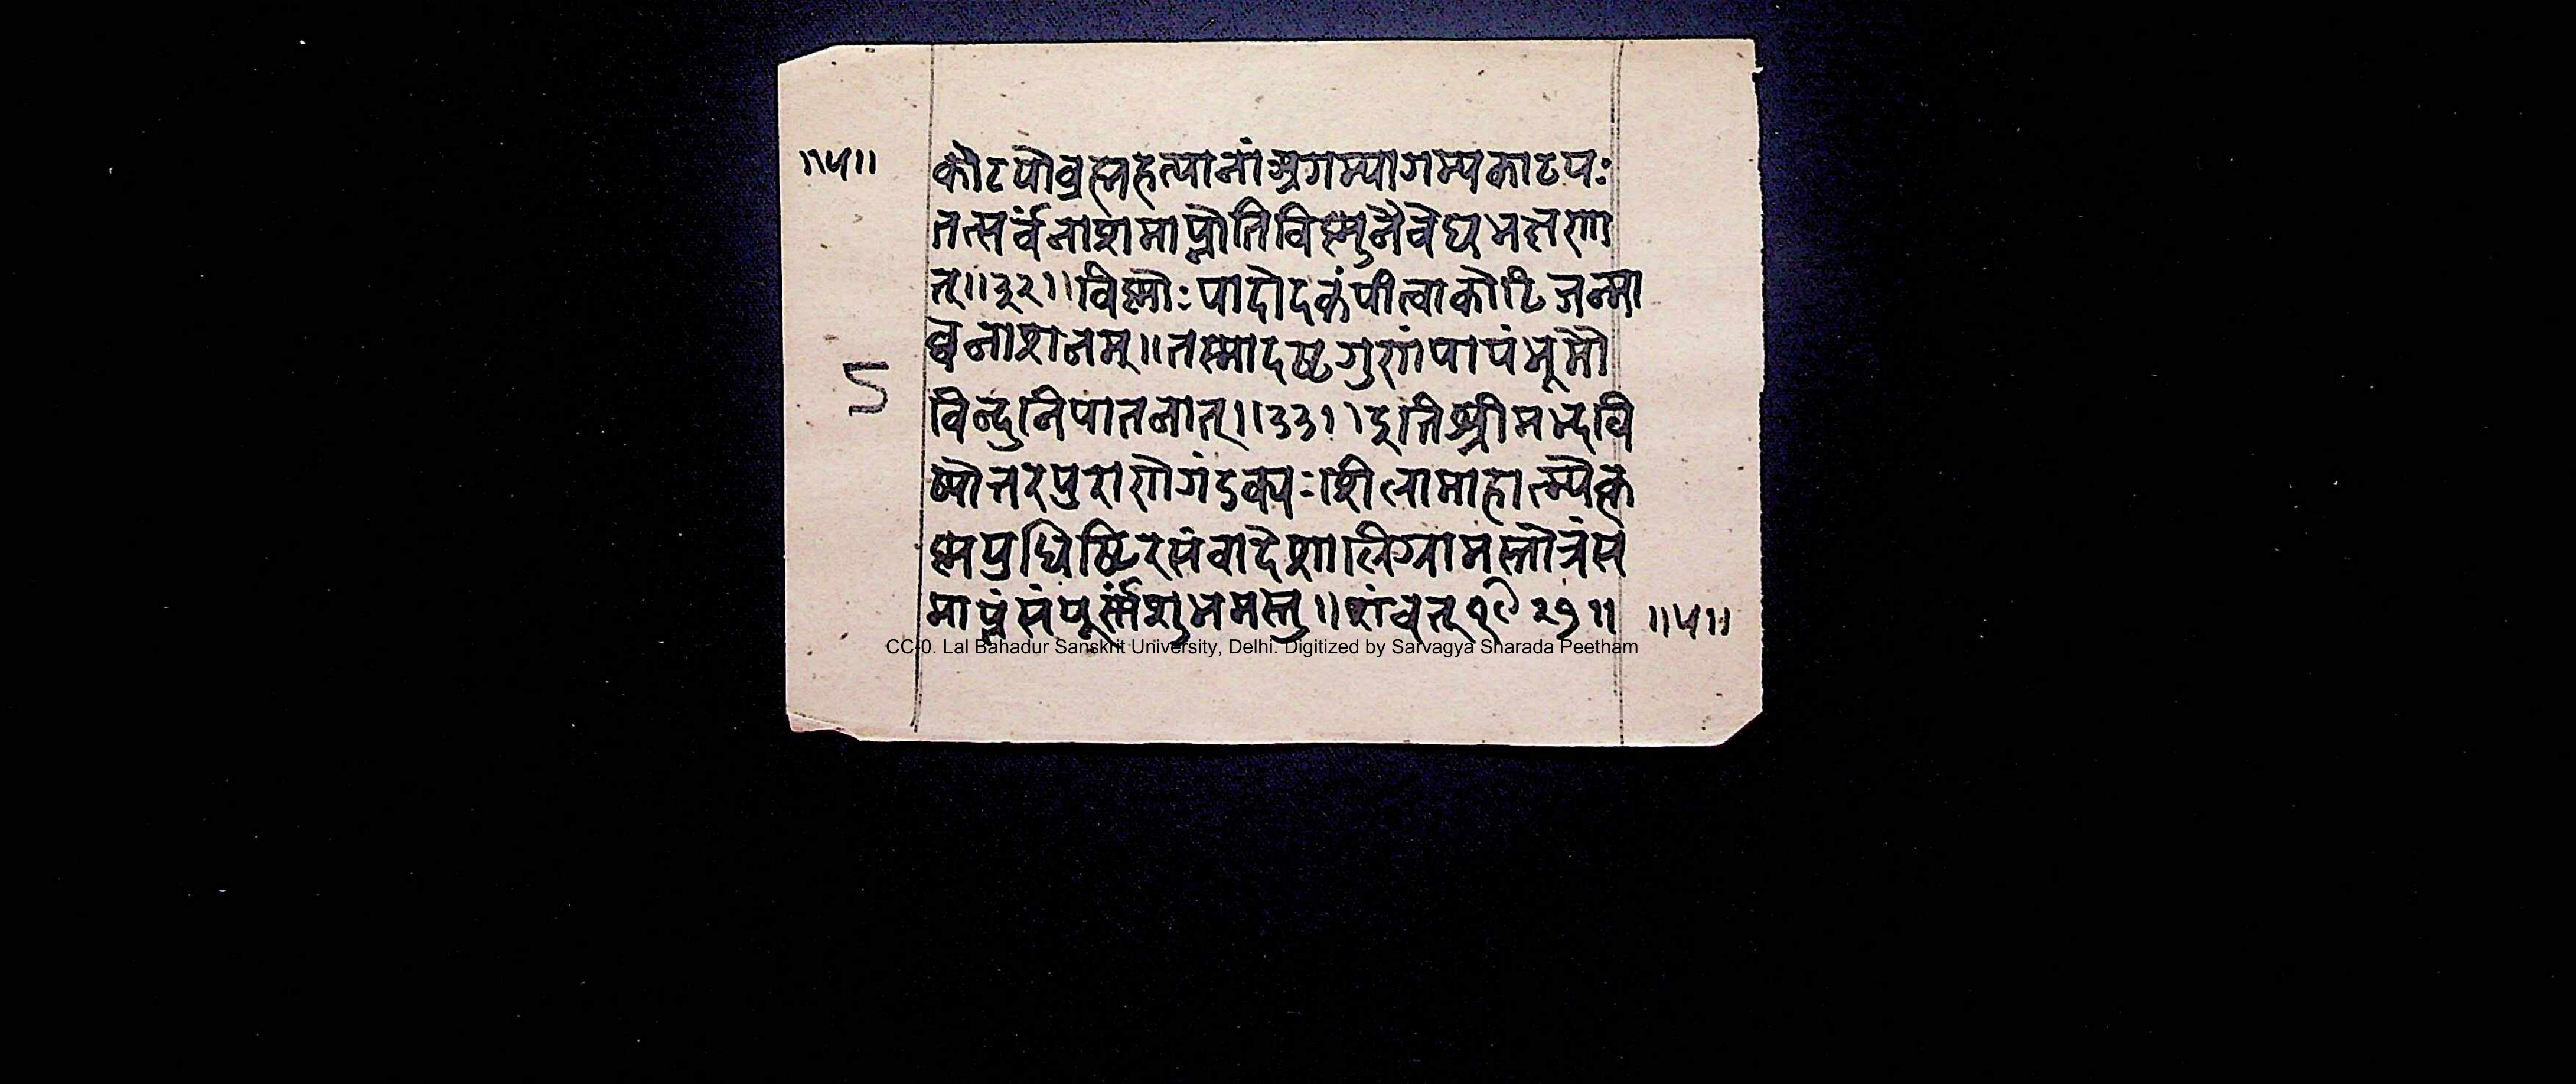 ॥५॥ कोटयोब्रह्महत्यानांअगम्यागम्यकोटयः
तत्सर्वंनाशमाप्नोतिविष्णुनैवेद्यभक्षणा
त्॥३२॥विष्णोःपादोदकंपीत्वाकोटिजन्मा
घनाशनम्॥तस्मादष्टगुणंपापंभूमौ
5
विन्दुनिपातनात्॥३३॥इतिश्रीमद्भवि
ष्योत्तरपुराणेगंडक्यःशिलामाहात्म्येकृ
ष्णयुधिष्ठिरसंवादेशालिग्रामस्तोत्रंस
माप्तंसंपूर्णंशुभमस्तु॥शंवत्१९२७॥ ॥५॥
CC-0. Lal Bahadur Sanskrit University, Delhi. Digitized by Sarvagya Sharada Peetham